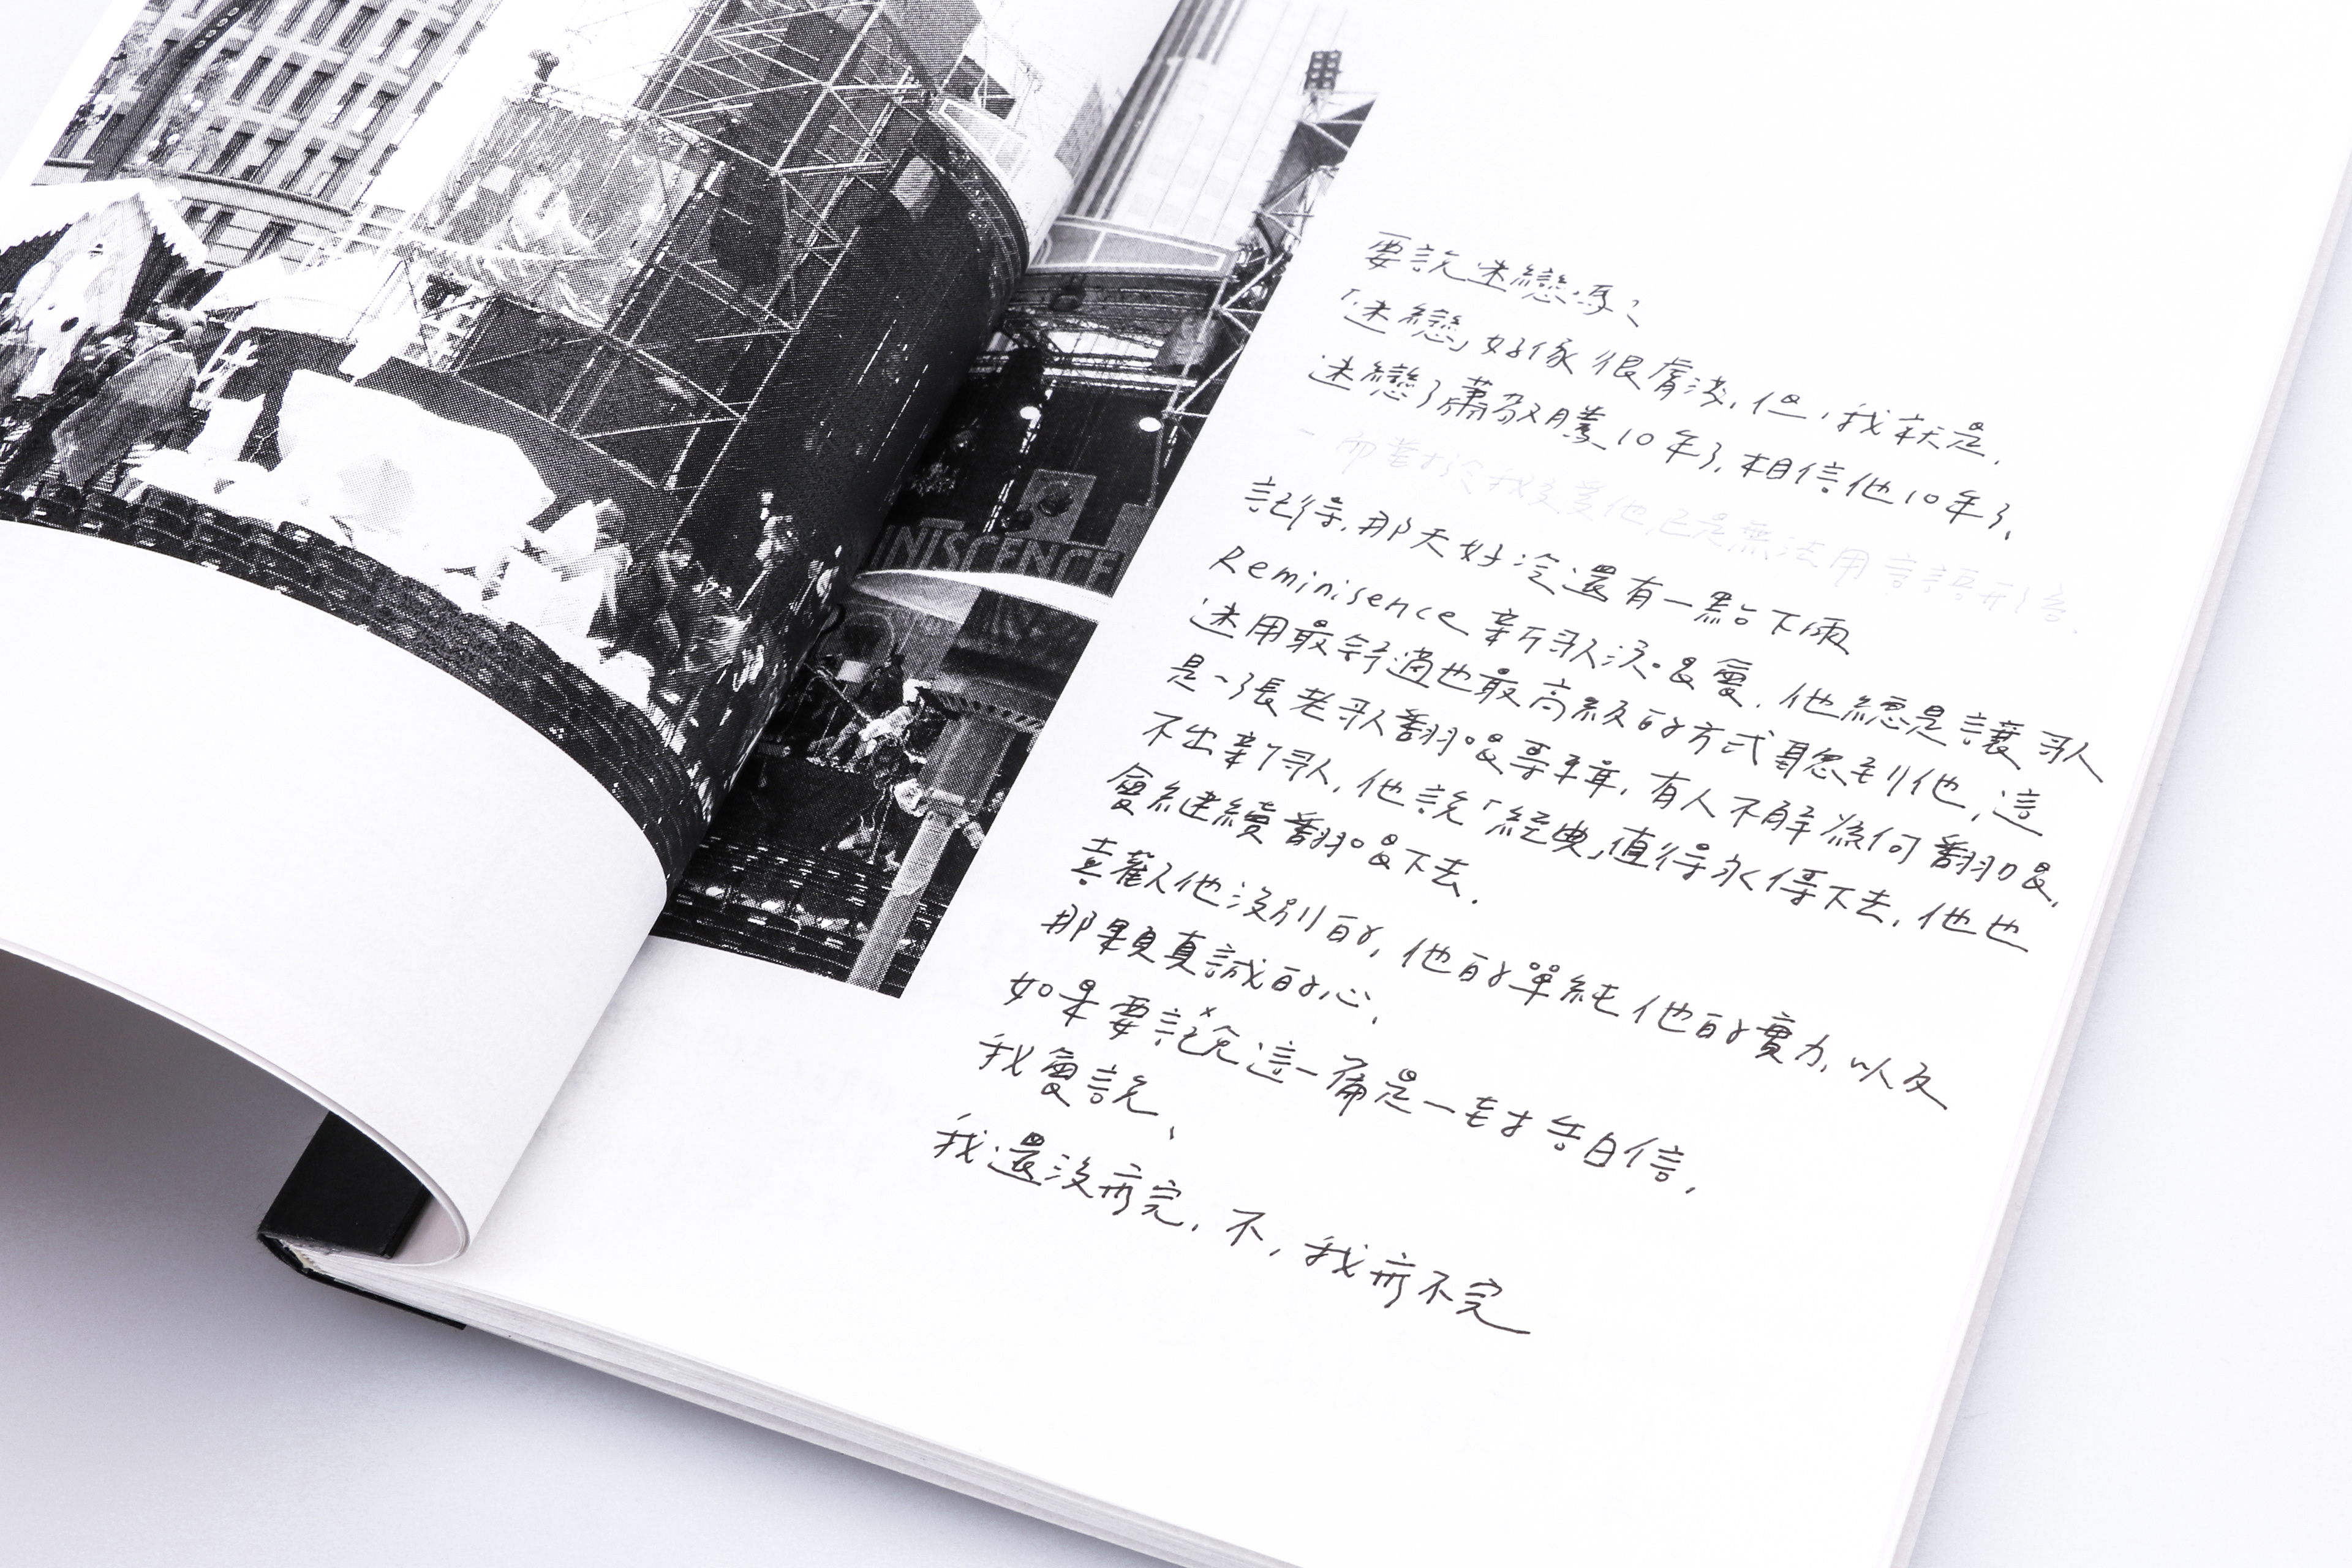 NISCENCE
要説迷戀嗎？
「迷戀」好像很膚淺，但，我就是．
迷戀了蕭敬騰10年了，相信他10年了、
而對於我愛他，已是無法用言語形容．
記得，那天好冷還有一點下雨
Reminisence 新歌演唱會．他總是讓歌
迷用最舒適也最高級的方式聽到他，這
是一張老歌翻唱專輯，有人不解為何翻唱，
不出新歌，他説「經典」值得永傳下去，他也
會繼續翻唱下去．
喜歡他沒別的，他的單純他的實力，以及
那顆真誠的心、
如果要説這一篇是一封告白信，
我會説、
我還沒病完，不，我病不完